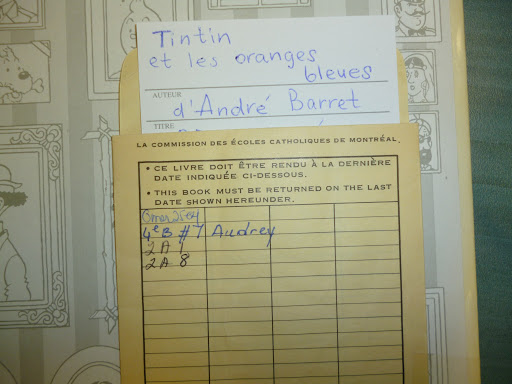 Tintin
et les oranges
bleues
AUTEUR
d'André Barret
TITRE
LA COMMISSION DES ÉCOLES CATHOLIQUES DE MONTRÉAL.
• CE LIVRE DOIT ÊTRE RENDU À LA DERNIÈRE
DATE INDIQUÉE CI-DESSOUS.
• THIS BOOK MUST BE RETURNED ON THE LAST
DATE SHOWN HEREUNDER.
4e B #7 Audrey
2A 1
2A 8